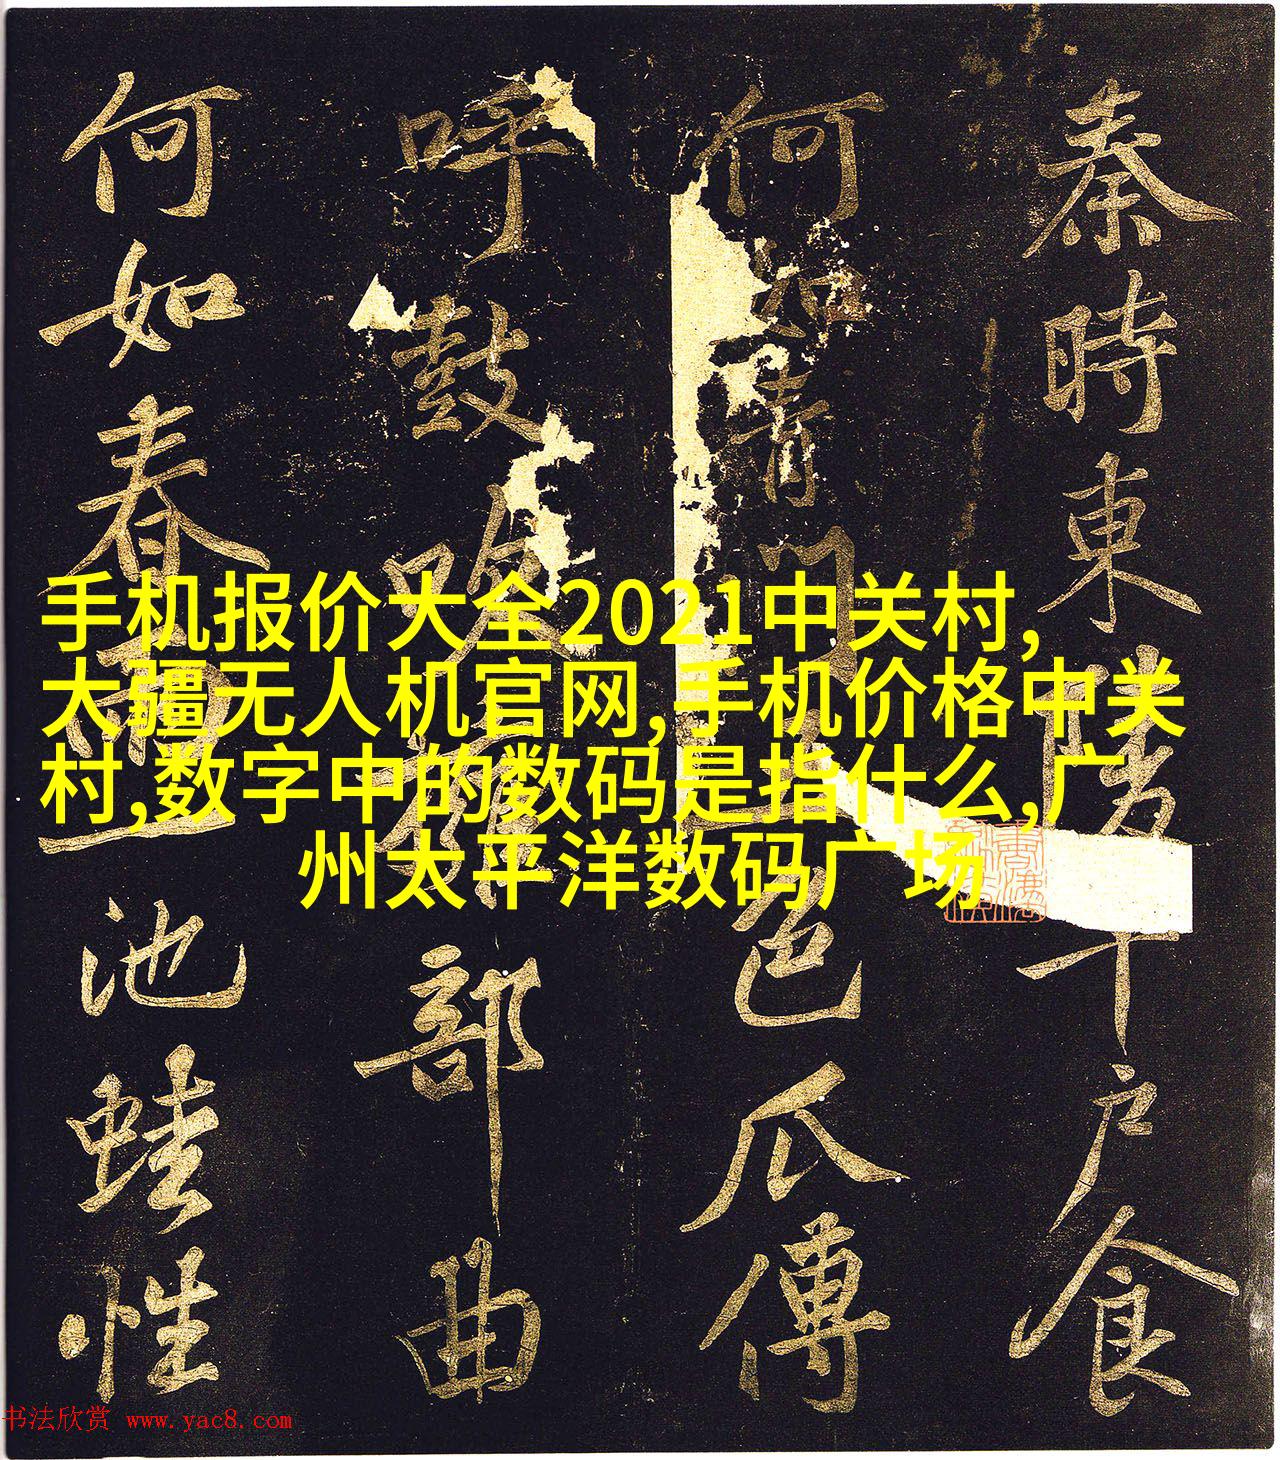 秦時東陵千戶食
何如青門五色瓜傳
呼鼓吹權部曲
何如春雨一池蛙性
手机报价大全2021中关村,
大疆无人机官网,手机价格中关
村,数字中的数码是指什么,广
州太平洋数码广场
书法欣赏 www.yac8.com